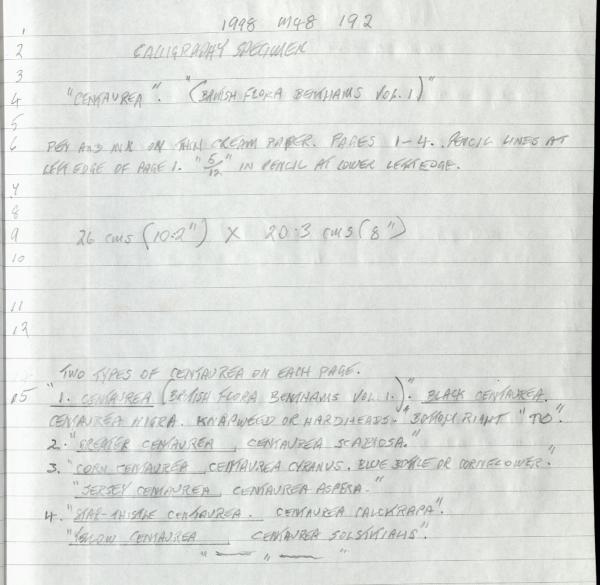 1998 M48 192
1
2 CALLIGRAPHY SPECIMEN
3
4 "CENTAUREA". "(BRITISH FLORA BENTHAMS VOL. 1)"
5
6 PEN AND INK ON THIN CREAM PAPER. PAGES 1-4. PENCIL LINES AT
LEFT EDGE OF PAGE 1. "5/12" IN PENCIL AT LOWER LEFT EDGE.
7
8
9 26 cms (10.2") X 20.3 cms (8")
10
11
12
TWO TYPES OF CENTAUREA ON EACH PAGE.
15 "1. CENTAUREA (BRITISH FLORA BENTHAMS VOL 1.)." BLACK CENTAUREA.
CENTAUREA NIGRA. KNAPWEED OR HARDHEADS." BOTTOM RIGHT "TO".
2. "GREATER CENTAUREA, CENTAUREA SCABIOSA."
3. "CORN CENTAUREA, CENTAUREA CYRANUS. BLUE BOTTLE OR CORNFLOWER."
"JERSEY CENTAUREA, CENTAUREA ASPERA."
4. "STAR-THISTLE CENTAUREA. CENTAUREA CALCITRAPA".
"YELLOW CENTAUREA CENTAUREA SOLSTITIALIS".